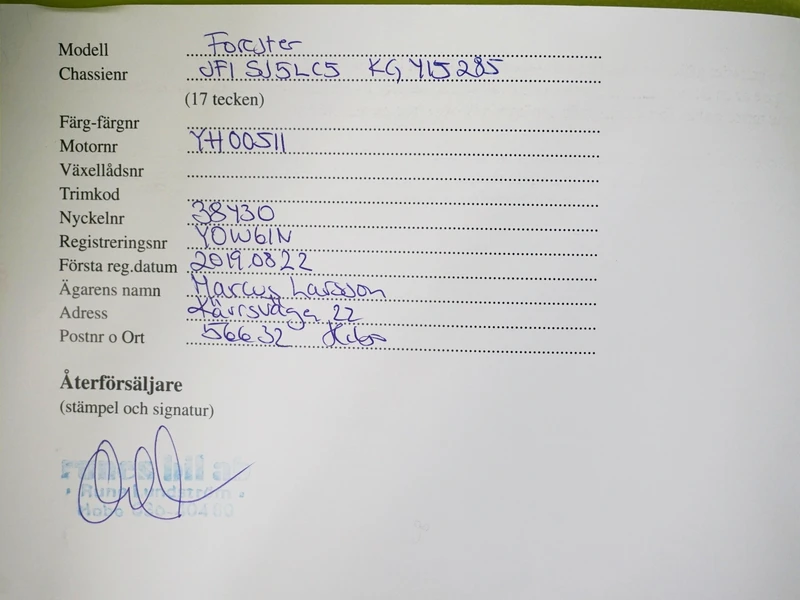 Modell Forester
Chassienr JF1 SJ5LC5 KG 415285
(17 tecken)
Färg-färgnr
Motornr YH00511
Växellådsnr
Trimkod
Nyckelnr 38430
Registreringsnr YOW61N
Första reg.datum 2019.08.22
Ägarens namn Marcus Larsson
Adress 22
Postnr o Ort 56632 Habo
Återförsäljare
(stämpel och signatur)
bil
Rune Lundström
Habo